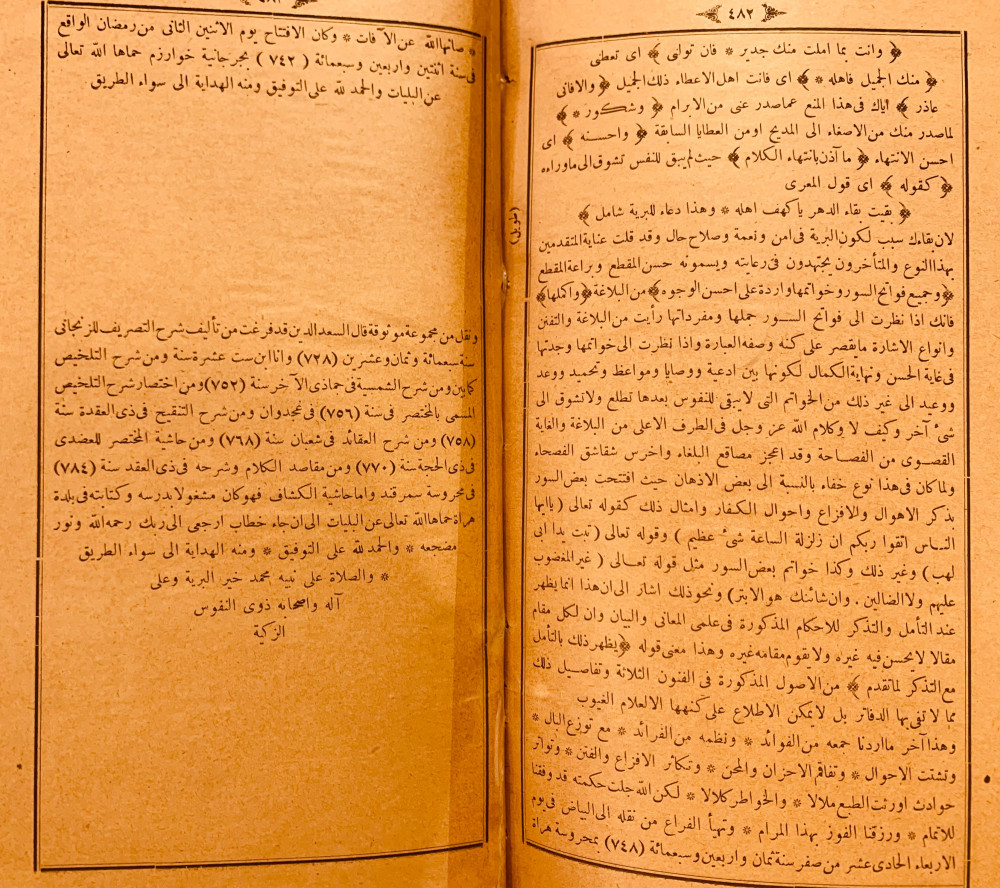 ٤٨٢
﴿ وانت بما املت منك جدير * فان تولنى ﴾ اى تعطنى
﴿ منك الجميل فاهله * ﴾ اى فانت اهل الاعطاء ذلك الجميل ﴿ والافانى
عاذر ﴾ اياك فى هذا المنع عماصدر عنى من الابرام ﴿ وشكور * ﴾
لماصدر منك من الاصغاء الى المديح اومن العطايا السابقة ﴿ واحسنه ﴾ اى
احسن الانتهاء ﴿ ما آذن بانتهاء الكلام ﴾ حيث لم يبق للنفس تشوق الى ماوراءه
﴿ كقوله ﴾ اى قول المعرى
﴿ بقيت بقاء الدهر ياكهف اهله * وهذا دعاء للبرية شامل ﴾
(طويل)
لان بقاءك سبب لكون البرية فى امن ونعمة وصلاح حال وقد قلت عناية المتقدمين
بهذا النوع والمتأخرون يجتهدون فى رعايته ويسمونه حسن المقطع وبراعة المقطع
﴿ وجميع فواتح السور وخواتمها واردة على احسن الوجوه ﴾ من البلاغة ﴿ واكملها ﴾
فانك اذا نظرت الى فواتح السور جملها ومفرداتها رأيت من البلاغة والتفنن
وانواع الاشارة مايقصر على كنه وصفه العبارة واذا نظرت الى خواتمها وجدتها
فى غاية الحسن ونهاية الكمال لكونها بين ادعية ووصايا ومواعظ وتحميد ووعد
ووعيد الى غير ذلك من الخواتم التى لايبقى للنفوس بعدها تطلع ولاتشوق الى
شئ آخر وكيف لا وكلام الله عز وجل فى الطرف الاعلى من البلاغة والغاية
القصوى من الفصاحة وقد اعجز مصاقع البلغاء واخرس شقاشق الفصحاء
ولما كان فى هذا نوع خفاء بالنسبة الى بعض الاذهان حيث افتتحت بعض السور
بذكر الاهوال والافزاع واحوال الكفار وامثال ذلك كقوله تعالى ( ياايها
النـاس اتقوا ربكم ان زلزلة الساعة شئ عظيم ) وقوله تعالى ( تبت يدا ابى
لهب ) وغير ذلك وكذا خواتم بعض السور مثل قوله تعـالى ( غير المغضوب
عليهم ولا الضالين . وان شانئك هو الابتر ) ونحو ذلك اشار الى ان هذا انما يظهر
عند التأمل والتذكر للاحكام المذكورة فى علمى المعانى والبيان وان لكل مقام
مقالا لايحسن فيه غيره ولايقوم مقامه غيره وهذا معنى قوله ﴿ يظهر ذلك بالتأمل
مع التذكر لماتقدم ﴾ من الاصول المذكورة فى الفنون الثلاثة وتفاصـيل ذلك
مما لا تفى بها الدفاتر بل لايمكن الاطلاع على كنهها الالعلام الغيوب
وهذا آخر مااردنا جمعه من الفوائد * ونظمه من الفرائد * مع توزع البال *
وتشتت الاحوال * وتفاقم الاحزان والمحن * وتكاثر الافزاع والفتن * وتواتر
حوادث اورثت الطبع ملالا * والخواطر كلالا * لكن الله جلت حكمته قد وفقنا
للاتمام * ورزقنا الفوز بهذا المرام * وتهيأ الفراغ من نقله الى البياض فى يوم
الاربعاء الحادى عشر من صفر سنة ثمان واربعين وسبعمائة (٧٤٨) بمحروسة هراة
* صانها الله عن الآفات * وكان الافتتاح يوم الاثنين الثانى من رمضان الواقع
فى سنة اثنتين واربعين وسبعمائة ( ٧٤٢ ) بجرجانية خوارزم حماها الله تعالى
عن البليات والحمد لله على التوفيق ومنه الهداية الى سواء الطريق
ونقل من مجموعة موثوقة قال السعد الدين قد فرغت من تأليف شرح التصريف للزنجانى
سنة سبعمائة وثمان وعشرين (٧٢٨) وانا ابن ست عشرة سنة ومن شرح التلخيص
كمابين ومن شرح الشمسية فى جماذى الآخر سنة (٧٥٢) ومن اختصار شرح التلخيص
المسمى بالمختصر فى سنة (٧٥٦) فى غجدوان ومن شرح التنقيح فى ذى العقدة سنة
(٧٥٨) ومن شرح العقائد فى شعبان سنة (٧٦٨) ومن حاشية المختصر للعضدى
فى ذى الحجة سنة (٧٧٠) ومن مقاصد الكلام وشرحه فى ذى العقد سنة (٧٨٤)
فى محروسة سمرقند واماحاشية الكشاف فهو كان مشغولا بدرسه وكتابته فى بلدة
هراة حماها الله تعالى عن البليات الى ان جاء خطاب ارجعى الى ربك رحمه الله ونور
مضجعه * والحمد لله على التوفيق * ومنه الهداية الى سواء الطريق
* والصلاة على نبيه محمد خير البرية وعلى
آله واصحابه ذوى النفوس
الزكية